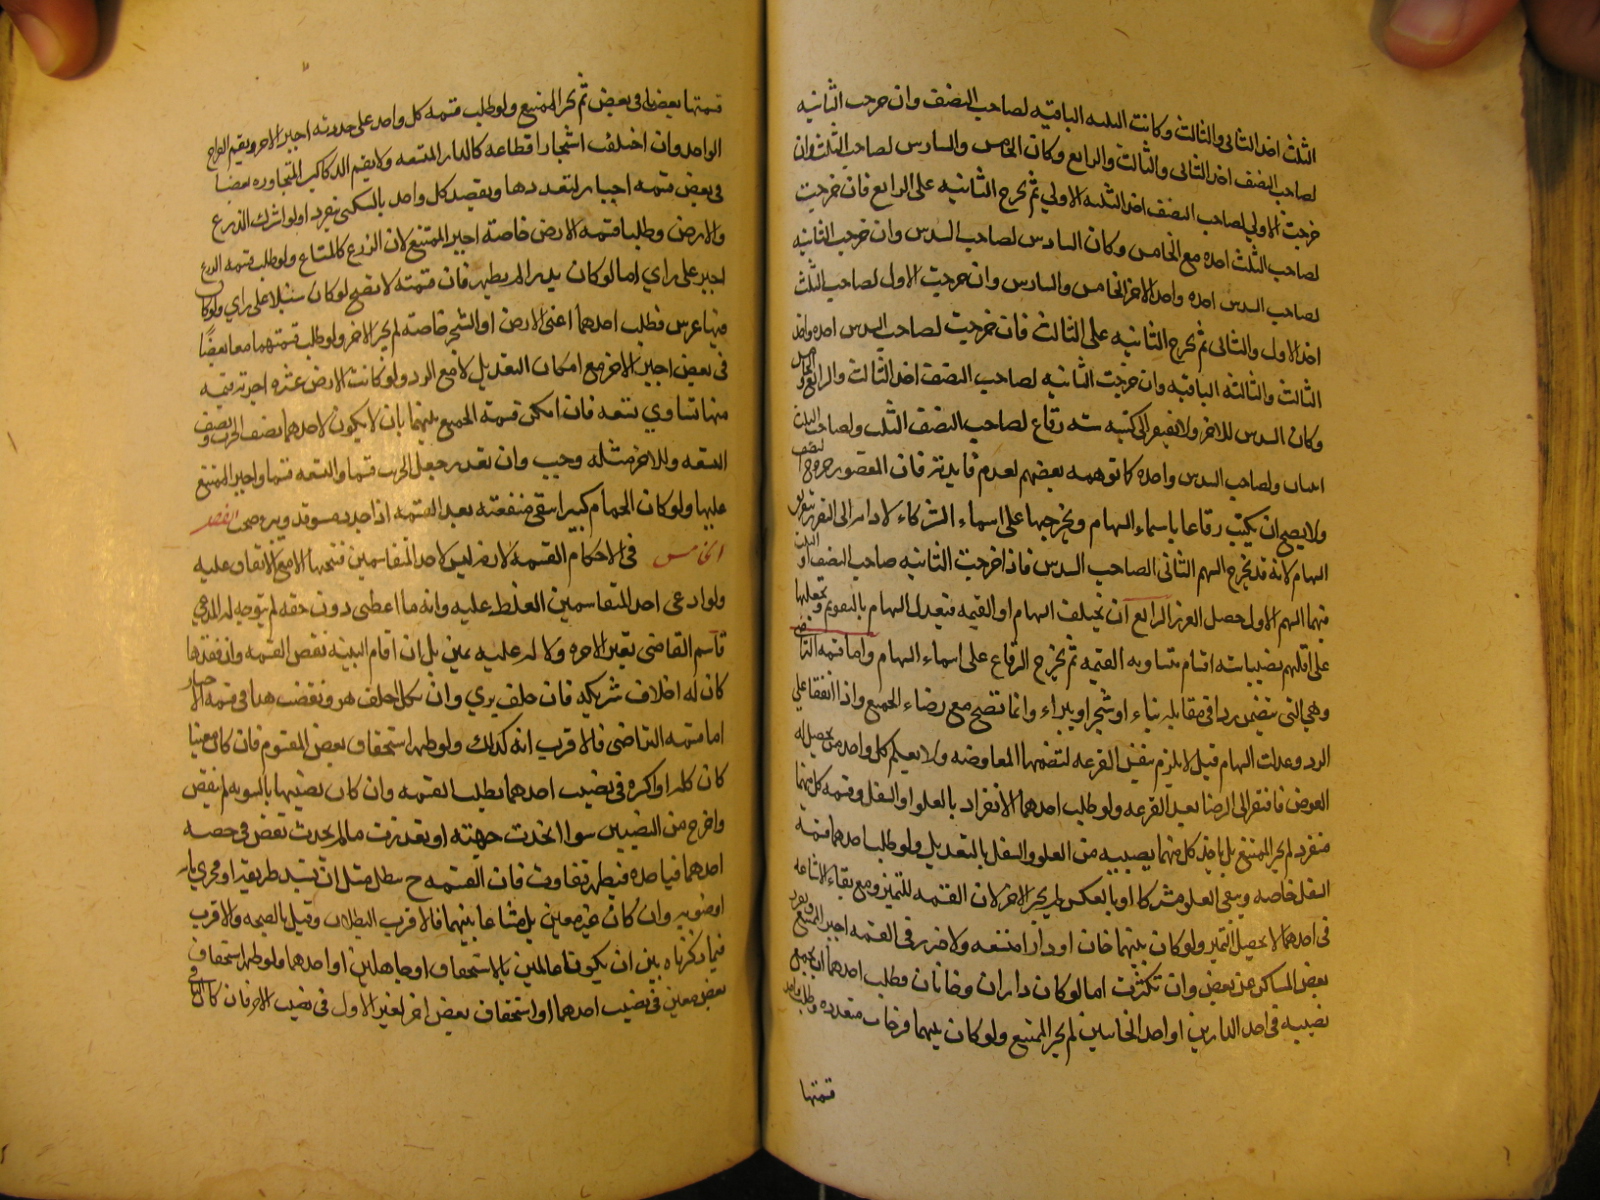 الثلث اخذ الثانى والثالث وكانت الثلثه الباقيه لصاحب النصف وان خرجت الثانيه
لصاحب النصف اخذ الثانى والثالث والرابع وكان الخامس والسادس لصاحب الثلث وان
خرجت الاولي لصاحب النصف اخذ الثلثه الاولي ثم يخرج الثانيه على الرابع فان خرجت
لصاحب الثلث اخذه مع الخامس وكان السادس لصاحب السدس وان خرجت الثانيه
لصاحب السدس اخذه واخذ الاخر الخامس والسادس وان خرجت الاول لصاحب الثلث
اخذ الاول والثانى ثم يخرج الثانيه على الثالث فان خرجت لصاحب السدس اخذه واخذ
الثالث والثالثه الباقيه وان خرجت الثانيه لصاحب النصف اخذ الثالث والرابع والخامس
وكان السدس للاخر ولا يفتقر الى كتبه سته رقاع لصاحب النصف الثلث ولصاحب الثلث
اثنتان ولصاحب السدس واحده كما توهمه بعضهم لعدم فايدته فان المقصود خروج
ولا يصح ان يكتب رقاعا باسماء السهام ويخرجها على اسماء الشركاء لادائه الى تفريق
السهام لانه قد يخرج السهم الثانى لصاحب السدس فاذا خرجت الثانيه صاحب النصف او الثلث
فيهما السهم الاول حصل الضرر الرابع ان تختلف السهام او القيمه فتعدل السهام بالتقويم وتجعلها
على اقلهم نصيبا سته اقسام متساويه القيمه ثم يخرج الرقاع على اسماء السهام واما قسمه التراضى
وهى التى تتضمن ردا فى مقابله بناء او شجر او بئر وانما تصح مع رضاء الجميع واذا اتفقا على
الرد وعدلت السهام قيل لا يلزم بنفس القرعه لتضمنها المعاوضه ولا يعلم كل واحد من يحصل له
العوض فافتقر الى الرضا بعد القرعه ولو طلب احدهما الانفراد بالعلو او السفل وقسمه كل منهما
منفرد لم يجبر الممتنع بل ياخذ كل منهما نصيبه من العلو والسفل بالتعديل ولو طلب احدهما قسمه
السفل خاصه ويبقى العلو مشتركا او بالعكس لم يجبر الاخر لان القسمه للتميز ومع بقاء الاشاعه
فى احدهما لا يحصل التميز ولو كان بينهما خان او دار متسعه ولا ضرر فى القسمه اجبر الممتنع
بعض المساكن عن بعض وان تكثرت اما لو كان داران وخانان وطلب احدهما ان يجمع
نصيبه فى احد الدارين او احد الخانين لم يجبر الممتنع ولو كان بينهما قرحان متعدده وطلب واحد
قسمتها
قسمتها بعضها فى بعض لم يجبر الممتنع ولو طلب قسمه كل واحد على حدته اجبر الاخر ويقسم القراح
الواحد وان اختلف اشجار اقطاعه كالدار المتسعه ولا يقسم الدكاكين المتجاوره بعضها
فى بعض قسمه اجبار لتعددها ويقصد كل واحد بالسكنى منفردا ولو اشترك الزرع
والارض وطلبا قسمه الارض خاصه اجبر الممتنع لان الزرع كالمتاع ولو طلب قسمه الزرع
اجبر على راي اما لو كان بذرا لم يظهر فان قسمته لا تصح لو كان سنبلا على راي ولو كان
فيها غرس فطلب احدهما اعنى الارض او الشجر خاصه لم يجبر الاخر ولو طلب قسمتهما معا بعضا
فى بعض اجبر الاخر مع امكان التعديل لا مع الرد ولو كانت الارض عشره اجربه قيمه
منها تساوي تسعه فان امكن قسمه الجميع بينهما بان لا يكون لاحدهما نصف الجريب ونصف
التسعه وللاخر مثله وجب وان تعذر جعل الجريب قسما والتسعه قسما واجبر الممتنع
عليها ولو كان الحمام كبيرا يبقى منفعته بعد القسمه اذا جدد مستوقد وبئر صحت الفصل
الخامس فى الاحكام القسمه لازمه ليس لاحد المتقاسمين فسخها الا مع الاتفاق عليه
ولو ادعى احد المتقاسمين الغلط عليه وانه ما اعطى دون حقه لم يتوجه له الدعوى
قاسم القاضى بغير الاجره ولا له عليه يمين بل ان اقام البينه نقض القسمه وان فقدها
كان له احلاف شريكه فان حلف بري وان نكل احلف هو ونقضت هذا فى قسمه الاجبار
اما قسمه التراضى فالاقرب انه كذلك ولو ظهر استحقاق بعض المقسوم فان كان معينا
كان كله او اكثره فى نصيب احدهما بطلت القسمه وان كان نصيبهما بالسويه لم ينقض
واخرج من النصيبين سوا اتحدت جهته او تعددت ما لم يحدث نقص فى حصه
احدهما فياخذه فيظهر تفاوت فان القسمه ح تبطل مثل ان تسد طريقه او مجري مائه
او ضوئه وان كان غير معين بل مشاعا بينهما فالاقرب البطلان وقيل بالصحه والاقرب
فيما ذكرناه بين ان يكونا عالمين بالاستحقاق او جاهلين او احدهما ولو ظهر استحقاق
بعض معين فى نصيب احدهما او استحقاق بعض اخر لغير الاول فى نصيب الاخر فان كان الباقي